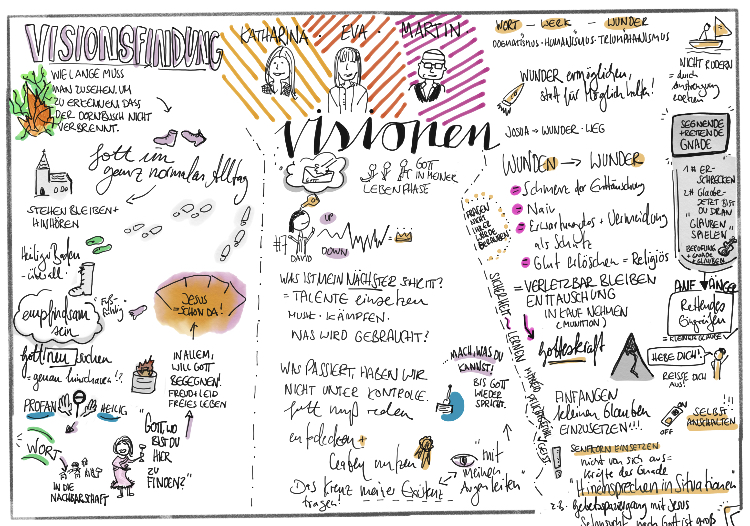 VISIONSFINDUNG
WIE LANGE MUSS
MAN ZUSEHEN, UM
ZU ERKENNEN, DASS
DER DORNBUSCH NICHT
VERBRENNT.
Gott im
ganz normalen Alltag
STEHEN BLEIBEN +
HINHÖREN
Heiliger Boden
- überall.
empfindsam
sein
"Fuß-
fühlig"
JESUS
SCHON DA!
Gott neu suchen
= genau hinschauen!!
IN ALLEM,
WILL GOTT
BEGEGNEN!
FREUD + LEID
FREIES LEBEN
PROFAN
HEILIG
WORT
IN DIE
NACHBARSCHAFT
"GOTT WO
BIST DU
HIER
ZU
FINDEN?"
KATHARINA · EVA · MARTIN
visionen
GOTT
IN MEINER
LEBENSPHASE
#1
DAVID
UP
DOWN
WAS IST MEIN NÄCHSTER SCHRITT?
= TALENTE einsetzen
MUSIK · KÄMPFEN.
WAS WIRD GEBRAUCHT?
WAS PASSIERT, HABEN WIR
NICHT UNTER KONTROLLE.
Gott muß reden
entdecken +
Gaben nutzen
Das Kreuz meiner Existenz
tragen!
MACH, WAS DU
KANNST!
BIS GOTT
WIEDER
SPRICHT.
"mit
meinen
Augen leiten"
WORT — WERK — WUNDER
DOGMATISMUS · HUMANISMUS · TRIUMPHANISMUS
WUNDER ermöglichen,
statt für möglich halten!
JOSUA → WUNDER · WEG
WUNDEN → WUNDER
Schmerz der Enttäuschung
Naiv
Erwartungslos + Vermeidung
als Schutz
Glut erlöschen = Religiös
= VERLETZBAR BLEIBEN
ENTTÄUSCHUNG
IN KAUF NEHMEN
(MUNITION)
Gotteskraft
FRAGEN
NICHT
IHRER
WÜRDE
BERAUBEN!
SICHERHEIT
LERNEN
ANFANGEN
kleinen Glauben
EINZUSETZEN!!!
SENFKORN EINSETZEN
nicht von sich aus =
Kräfte der Gnade
"Hineinsprechen in Situationen"
z.B. Gebetsspaziergang mit Jesus
Sehnsucht nach Gott ist groß
NICHT RUDERN
= durch
Anstrengung
SEGNENDE
+ RETTENDE
GNADE
1# ER-
SCHRECKEN
2# Glaube-
JETZT BIST
DU DRAN
"GLAUBEN
SPIELEN"
BERUFUNG
+ GNADE
GLAUBEN
ANFÄNGE
Rettendes
Eingreifen
= KLEINER GLAUBE
HEBE DICH!
REISSE DICH
AUS!
ON
OFF
SELBST
ANSCHALTEN